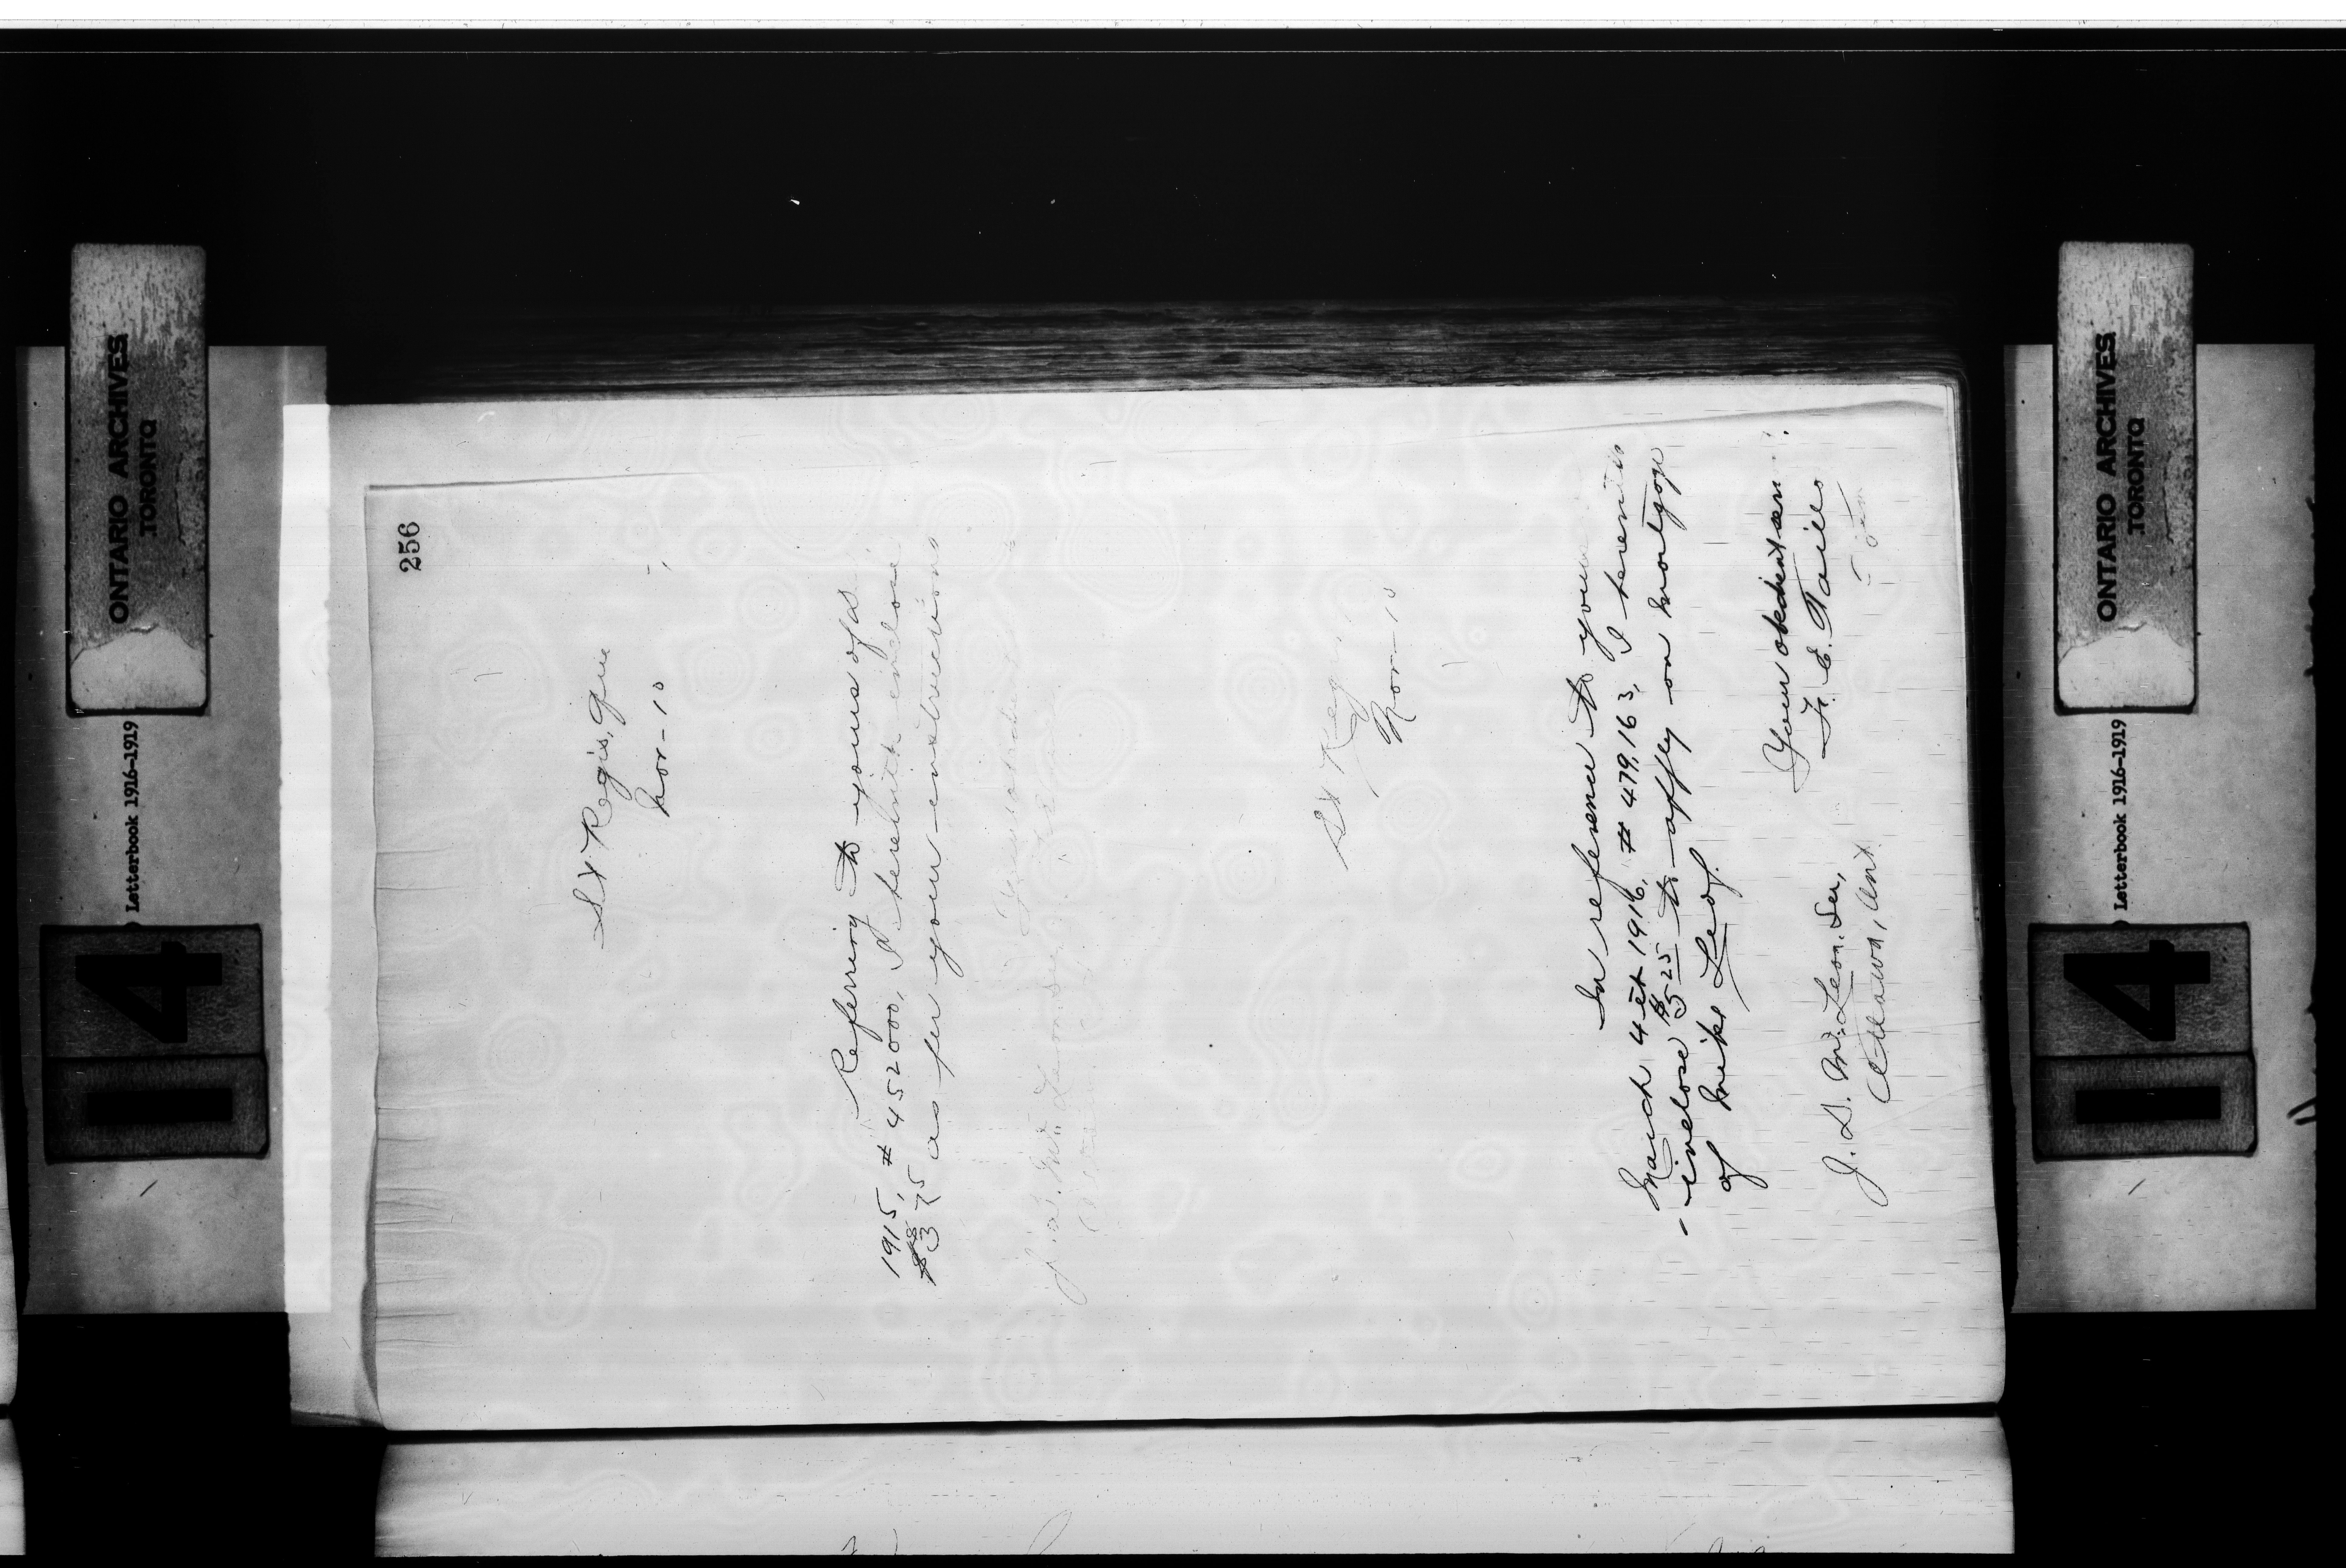 256
St Regis, Que
Nov - 10
Referring to yours of as
1915, # 452000, I herewith enclose
$3 75 as per your instructions
Your obedient
J. D. McLean. Secy
St Regis
Nov - 10
In reference to your
March 4 et 1916, # 479,163, I herewith
inclose $5 25 to apply on mortgage
of Mike Leaf.
Your obedient serv.
F. E. Taillo
J. D. McLean. Sec,
Ottawa, Ont
ONTARIO ARCHIVES
TORONTO
Letterbook 1916-1919
14
ONTARIO ARCHIVES
TORONTO
Letterbook 1916-1919
14